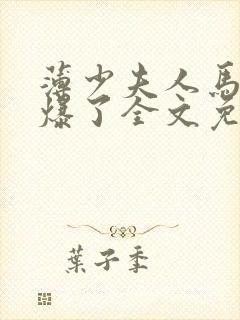 薄少夫人馬
爆了全文免
葉子季